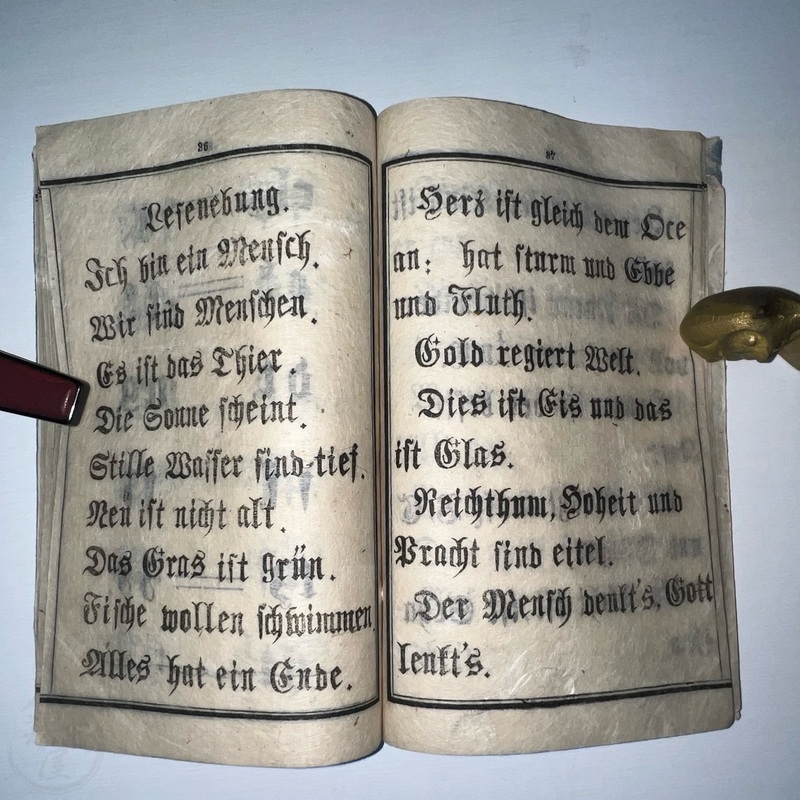 36
Lesenebung.
Ich bin ein Mensch.
Wir sind Menschen.
Es ist das Thier.
Die Sonne scheint.
Stille Wasser sind tief.
Neu ist nicht alt.
Das Gras ist grün.
Fische wollen schwimmen
Alles hat ein Ende.
37
Herz ist gleich dem Oce
an; hat sturm und Ebbe
und Fluth.
Gold regiert Welt.
Dies ist Eis und das
ist Glas.
Reichthum, Hoheit und
Pracht sind eitel.
Der Mensch denkt's, Gott
lenkt's.